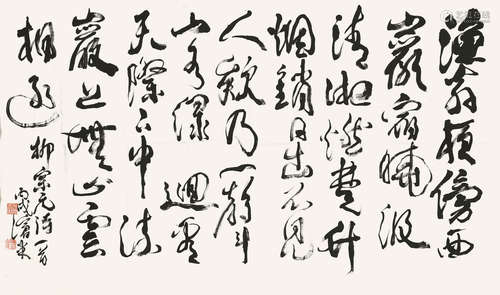 漁翁夜傍西
巖宿曉汲
清湘燃楚竹
烟銷日出不見
人欸乃一聲
山水綠迴看
天際下中流
巖上無心雲
相逐
柳宗元詩一首
丙戌